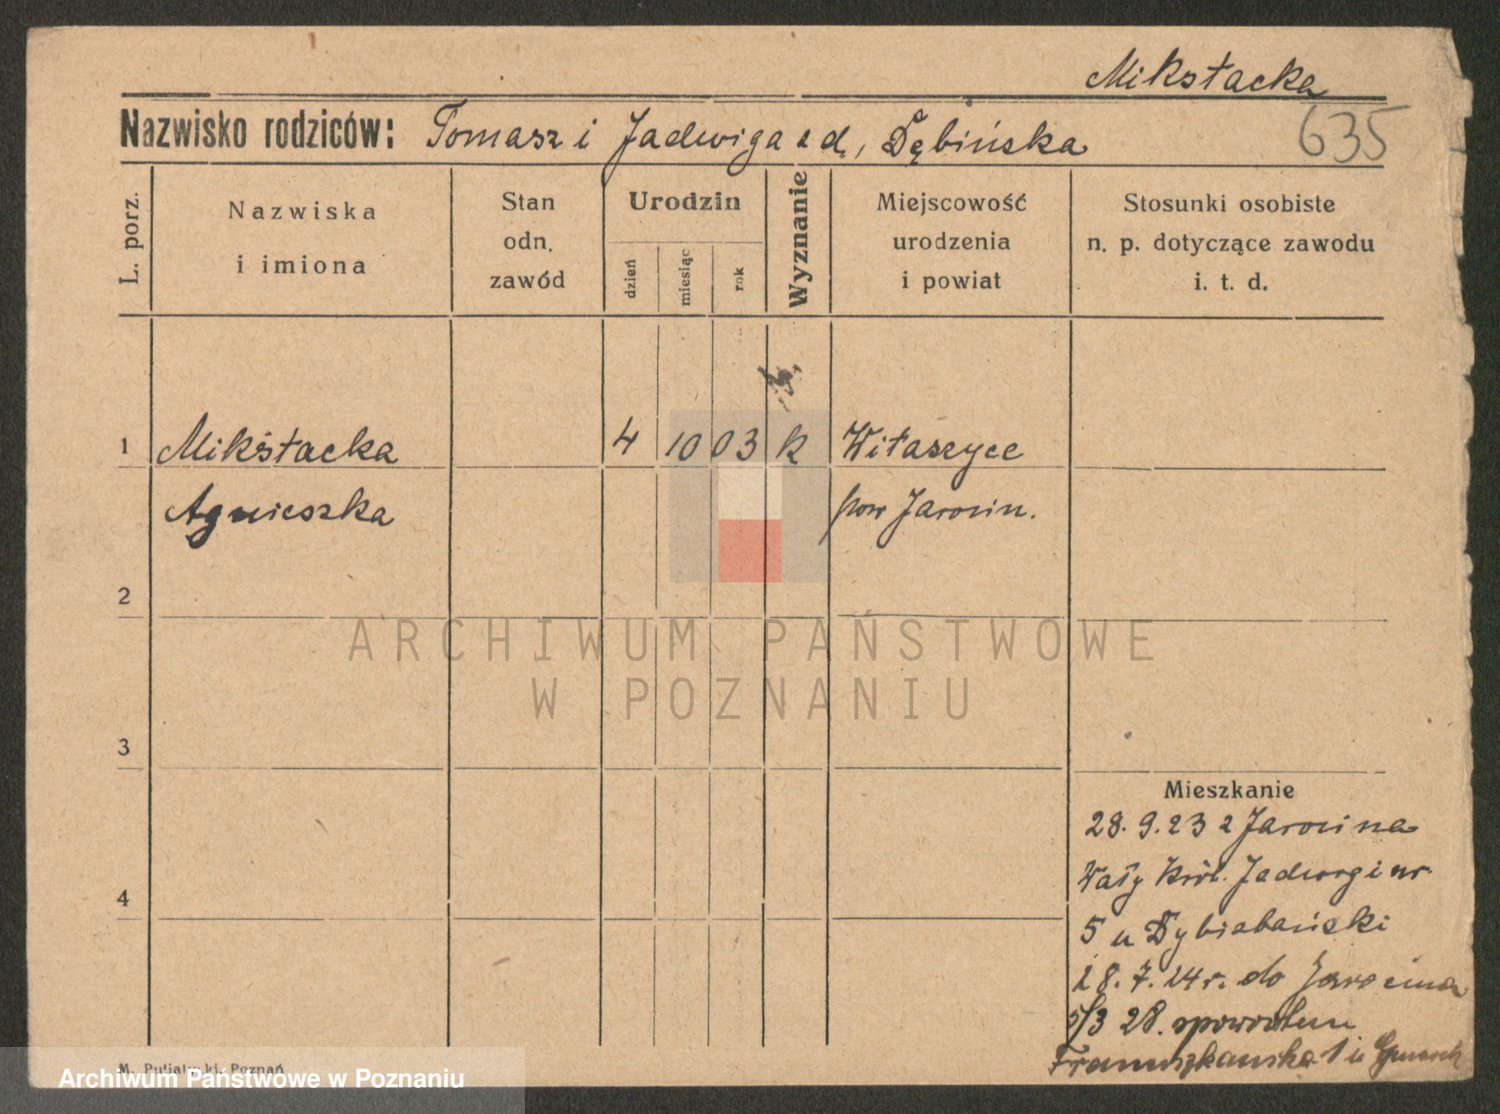 Mikstacka
Nazwisko rodziców: Tomasz i Jadwiga z d. Dębińska
635
L. porz.
Nazwiska
i imiona
Stan
odn.
zawód
Urodzin
dzień
miesiąc
rok
Wyznanie
Miejscowość
urodzenia
i powiat
Stosunki osobiste
n. p. dotyczące zawodu
i. t. d.
1 Mikstacka 4 10 03 k Witaszyce
Agnieszka pow Jarocin.
2
ARCHIWUM PAŃSTWOWE
W POZNANIU
3
Mieszkanie
28. 9. 23 z Jarocina
Wały Król. Jadwigi nr
4
5 u
28. 7. 24 r. do Jarocina
5/3 28. spowrotem
Franciszkańska 1 u
M. Putiatycki, Poznań
Archiwum Państwowe w Poznaniu